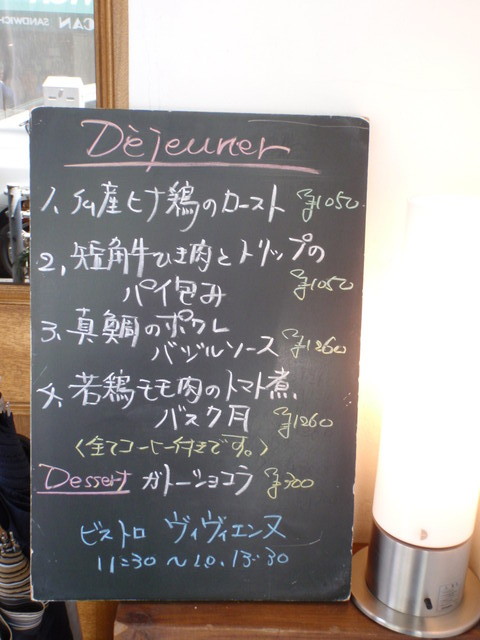 CAN SANDWICH
Dèjeuner
1、仏産ヒナ鶏のロースト ¥1050
2、短角牛ひき肉とトリップの
パイ包み ¥1050
3、真鯛のポワレ
バジルソース ¥1260
4、若鶏モモ肉のトマト煮、
バスク風 ¥1260
〈全てコーヒー付きです。〉
Dessert ガトーショコラ ¥300
ビストロ ヴィヴィエンヌ
11:30 〜L.O.13:30